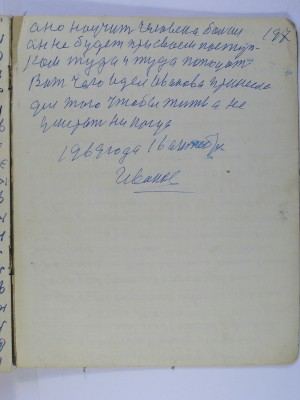 ано научит человека болш 197
ан не будет при своем поступ-
ком туда и туда попадат
Вот чаго идея Иванова принесла
для того чтобы жит а не
умерат никогда
1969 года 16 октября
Иванов